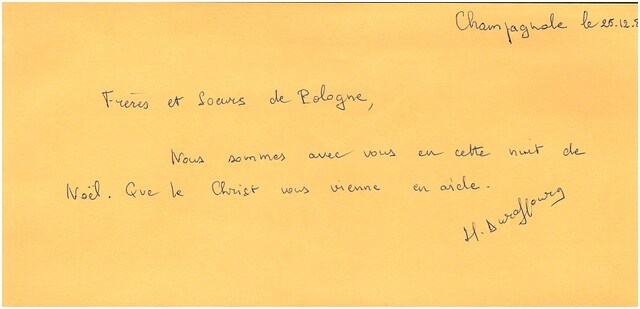 Champagnole le 25.12.8
Frères et Soeurs de Pologne,
Nous sommes avec vous en cette nuit de
Noël. Que le Christ vous vienne en aide.
H. Duraffourg